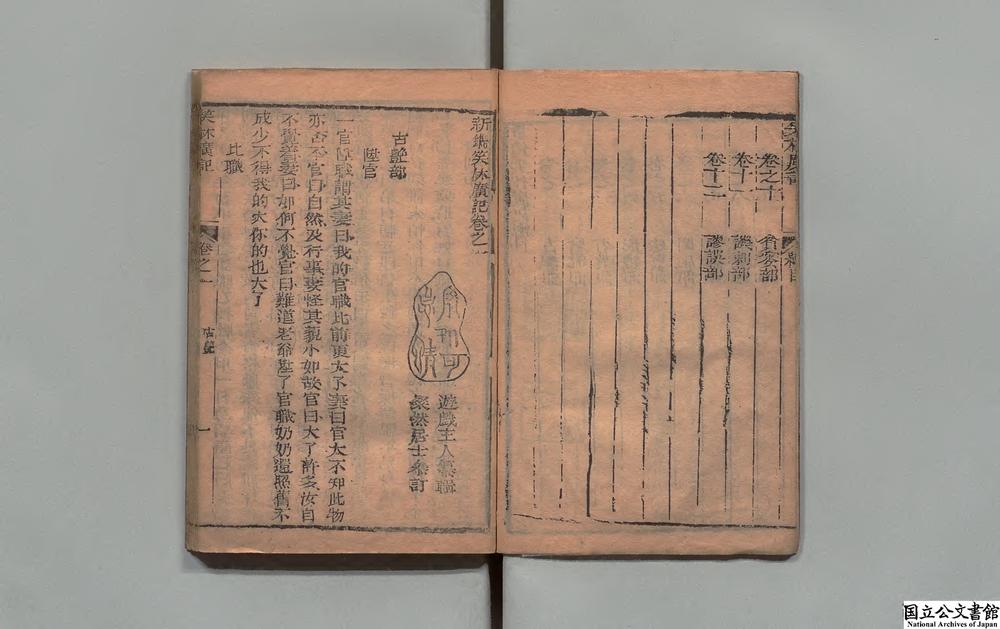 卷之十 貧窶部
卷十一 譏刺部
卷十二 謬誤部
新鐫笑林廣記卷之一
遊戲主人纂輯
粲然居士參訂
古艶部
陞官
一官陞職謂其妻曰我的官職比前更大了妻曰官大不知此物
亦大不官曰自然及行事妻怪其藐小如故官曰大了許多汝自
不覺着妻曰如何不覺官曰難道老爺陞了官職奶奶還照舊不
成少不得我的大你的也大了
比職
笑林廣記 卷之一 古艶 一
国立公文書館
National Archives of Japan